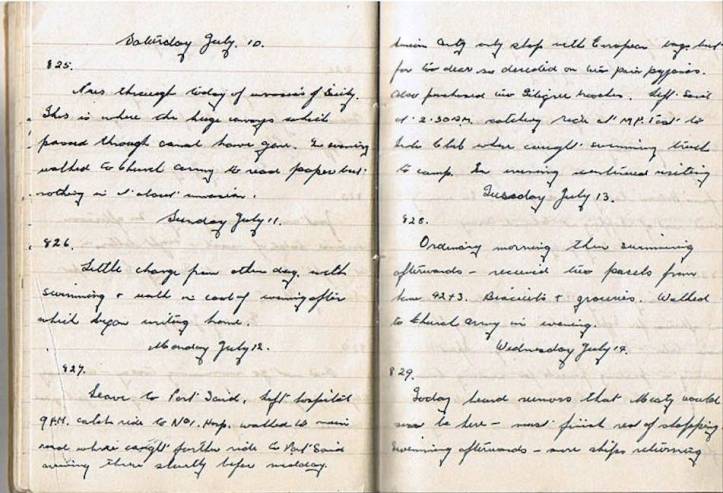 Saturday July. 10.
825.
News through today of invasion of Sicily.
This is where the huge convoys which
passed through canal have gone. In evening
walked to Church Army to read paper but
nothing in it about invasion.
Sunday July 11.
826.
Little change from other day, with
swimming + walk in cool of evening after
which began writing home.
Monday July 12.
827.
Leave to Port Said, left hospital
9 AM. catch ride to No 1. Hosp. walked to main
road where caught further ride to Port Said
arriving there shortly before midday.
only stop with European bags but
far too dear so decided on two pair pyjamas.
Also purchased two filigree broaches. Left Said
at 2.30 PM. catching ride at M.P. Post to
Club where caught swimming truck
to camp. In evening continued writing
Tuesday July 13.
828.
Ordinary morning then swimming
afterwards - received two parcels from
92+3. Biscuits + groceries. Walked
to Church Army in evening.
Wednesday July 14.
829.
Today heard rumors that would
soon be here - must finish rest of
Swimming afterwards - more ships returning